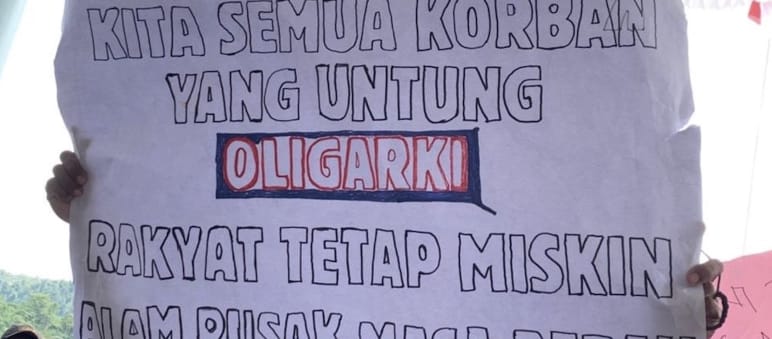 KITA SEMUA KORBAN
YANG UNTUNG
OLIGARKI
RAKYAT TETAP MISKIN
ALAM RUSAK MASA